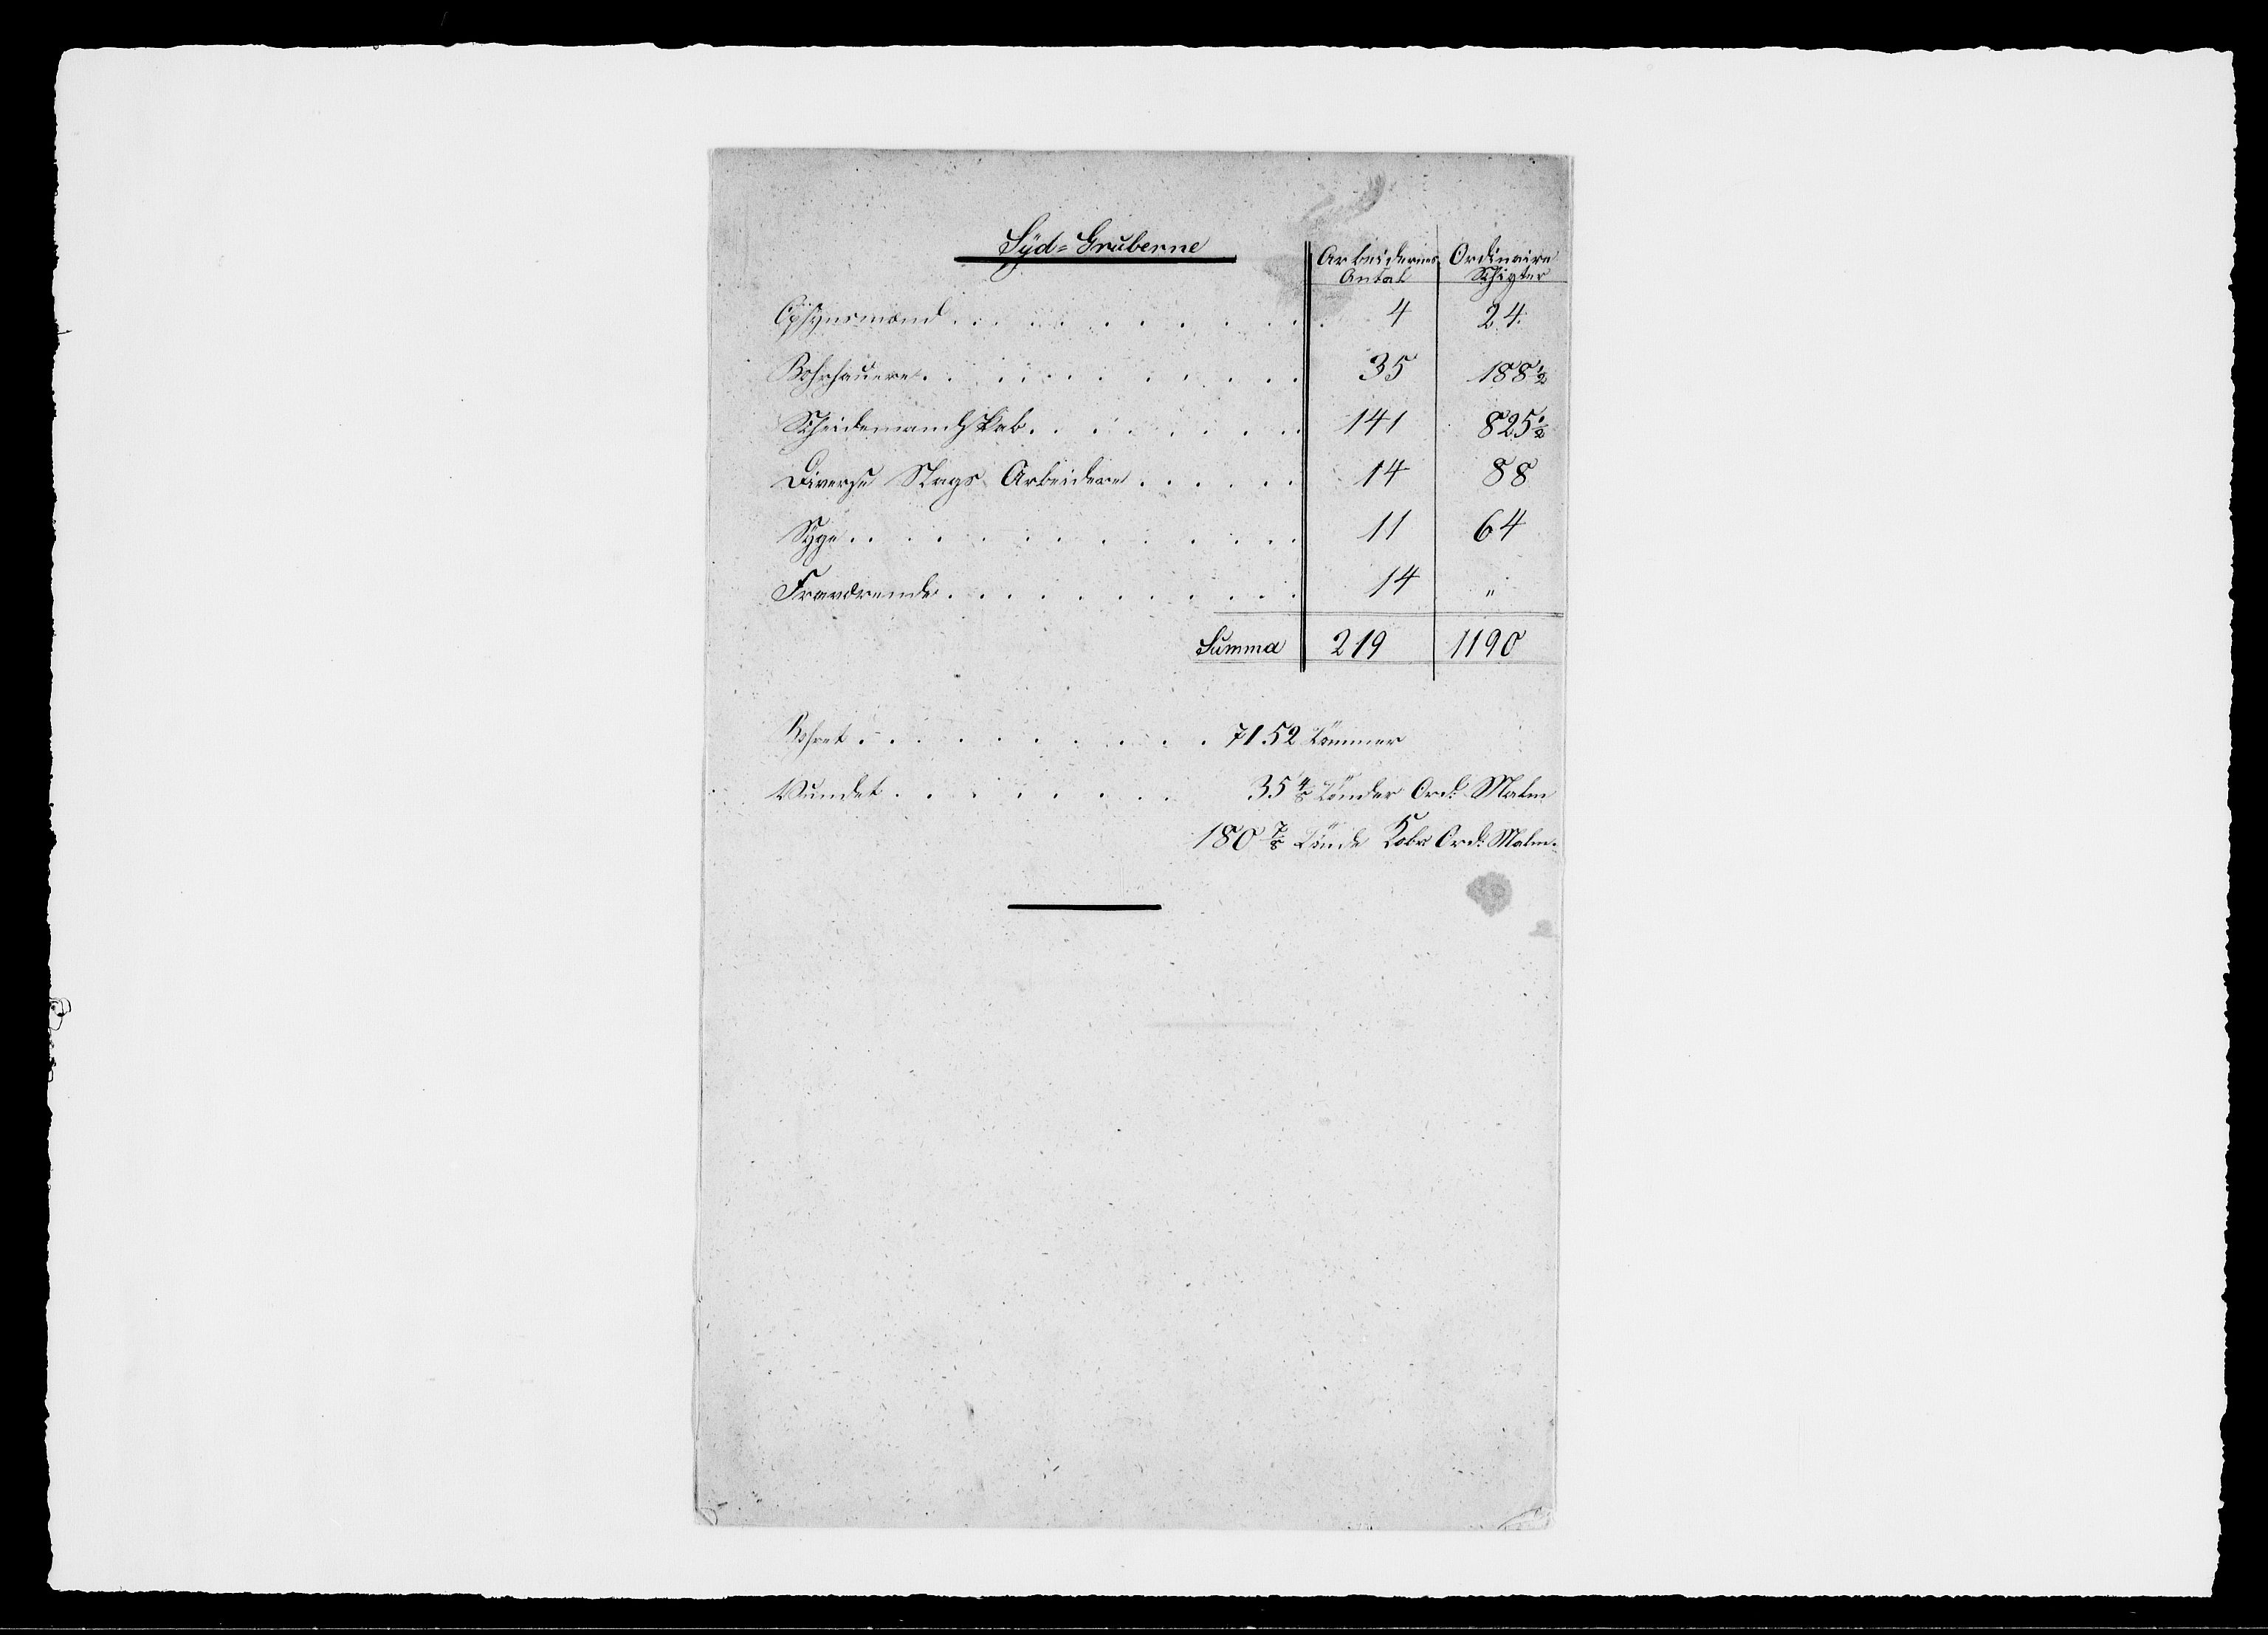 Syd=Gruberne
Arbeidernes Antal
Ordinaire Schigter
Opsynsmænd . . . . . . . . . . 4 24
Bohrhauere . . . . . . . . . . 35 188½
Scheidemandskab . . . . . . . . 141 825½
Diverse Dags Arbeidere . . . . . . 14 88
Syge . . . . . . . . . . . . 11 64
Fraværende . . . . . . . . . . . 14 "
Summa 219 1190
Bohret . . . . . . . . . . 7152 Tommer
Vundet . . . . . . . . 35 4/8 Tönder Ord: Malm
180 7/8 Tönde Kobr Ord: Malm.